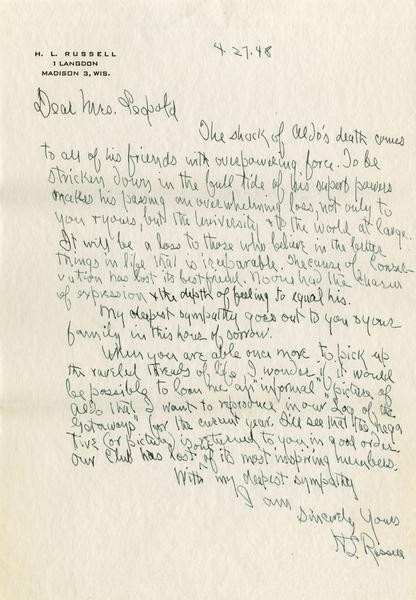 H. L. RUSSELL
1 LANGDON
MADISON 3, WIS.
4-27-48
Dear Mrs. Leopold
The shock of Aldo's death comes
to all of his friends with overpowering force. To be
stricken down in the full tide of his superb powers
makes his passing an overwhelming loss, not only to
you & yours, but the University & to the world at large.
It will be a loss to those who believe in the better
things in life that is irreparable. The cause of Conser-
vation has lost its best friend. No one had the charm
of expression & the depth of feeling to equal his.
My deepest sympathy goes out to you & your
family in this hour of sorrow.
When you are able once more to pick up
the raveled threads of life, I wonder if it would
be possible to loan me an "informal" picture of
Aldo that I want to reproduce in our "Log of the
Getaways" for the current year. I'll see that the nega-
tive (or picture) is returned to you in good order.
Our Club has lost one of its most inspiring members.
With my deepest sympathy
I am
Sincerely Yours
HL Russell